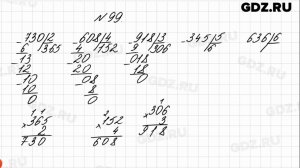 GDZ.RU
№99
-730|2 -608|4 -918|3 -345|5 636|6
6 |365 4 |152 9 |306 |6
-13 -20 018
12 20 18
-10 -08 0
10 8
0 0
1 1 2 1
×365 ×152 ×306
2 4 3
730 608 918
GDZ.RU